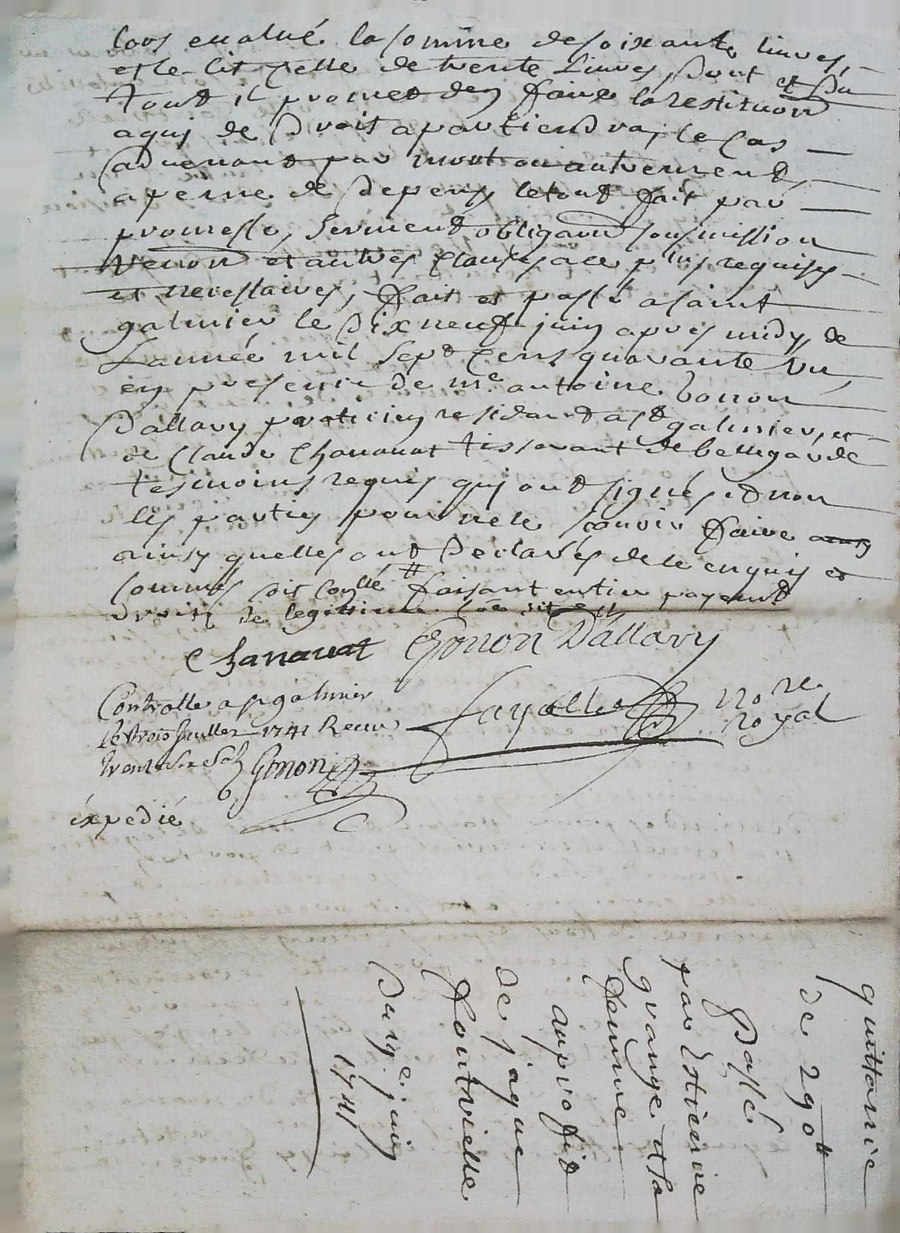 lors evalué la somme de soixante livres,
et le lit celle de trente livres, dont et du
tout il promet den faire la restituon
a qui de droit apartiendra, le cas
advenant par mort ou autrement
a peine de depens le tout fait par
promesse, serment obligaon sousmission
renon et autres clauses a ce plus requises
et necessaires, fait et passé a saint
galmier le dix neuf juin apres midy, de
lannée mil sept cens quarante un
en presence de me antoine
Dallary praticien residant a st galmier, et
de Claude Chanavat tisserant de bellegarde
tesmoins requis qui ont signés et non
les parties pour ne le scavoir faire
ainsy quelles ont declarés de ce enquis et
sommés soit conllé # faisant entier payemt
droits de legitime
Chanavat Gonon Dallary
Controlle a st galmier
le trois juillet 1741 Receu
Gonon
Fayolle nore
royal
éxpedié
quittance
de 290lt
Passé
par Estienne
grange et sa
femme
au profit
de jaque
fontvielle
Du 19e juin
1741